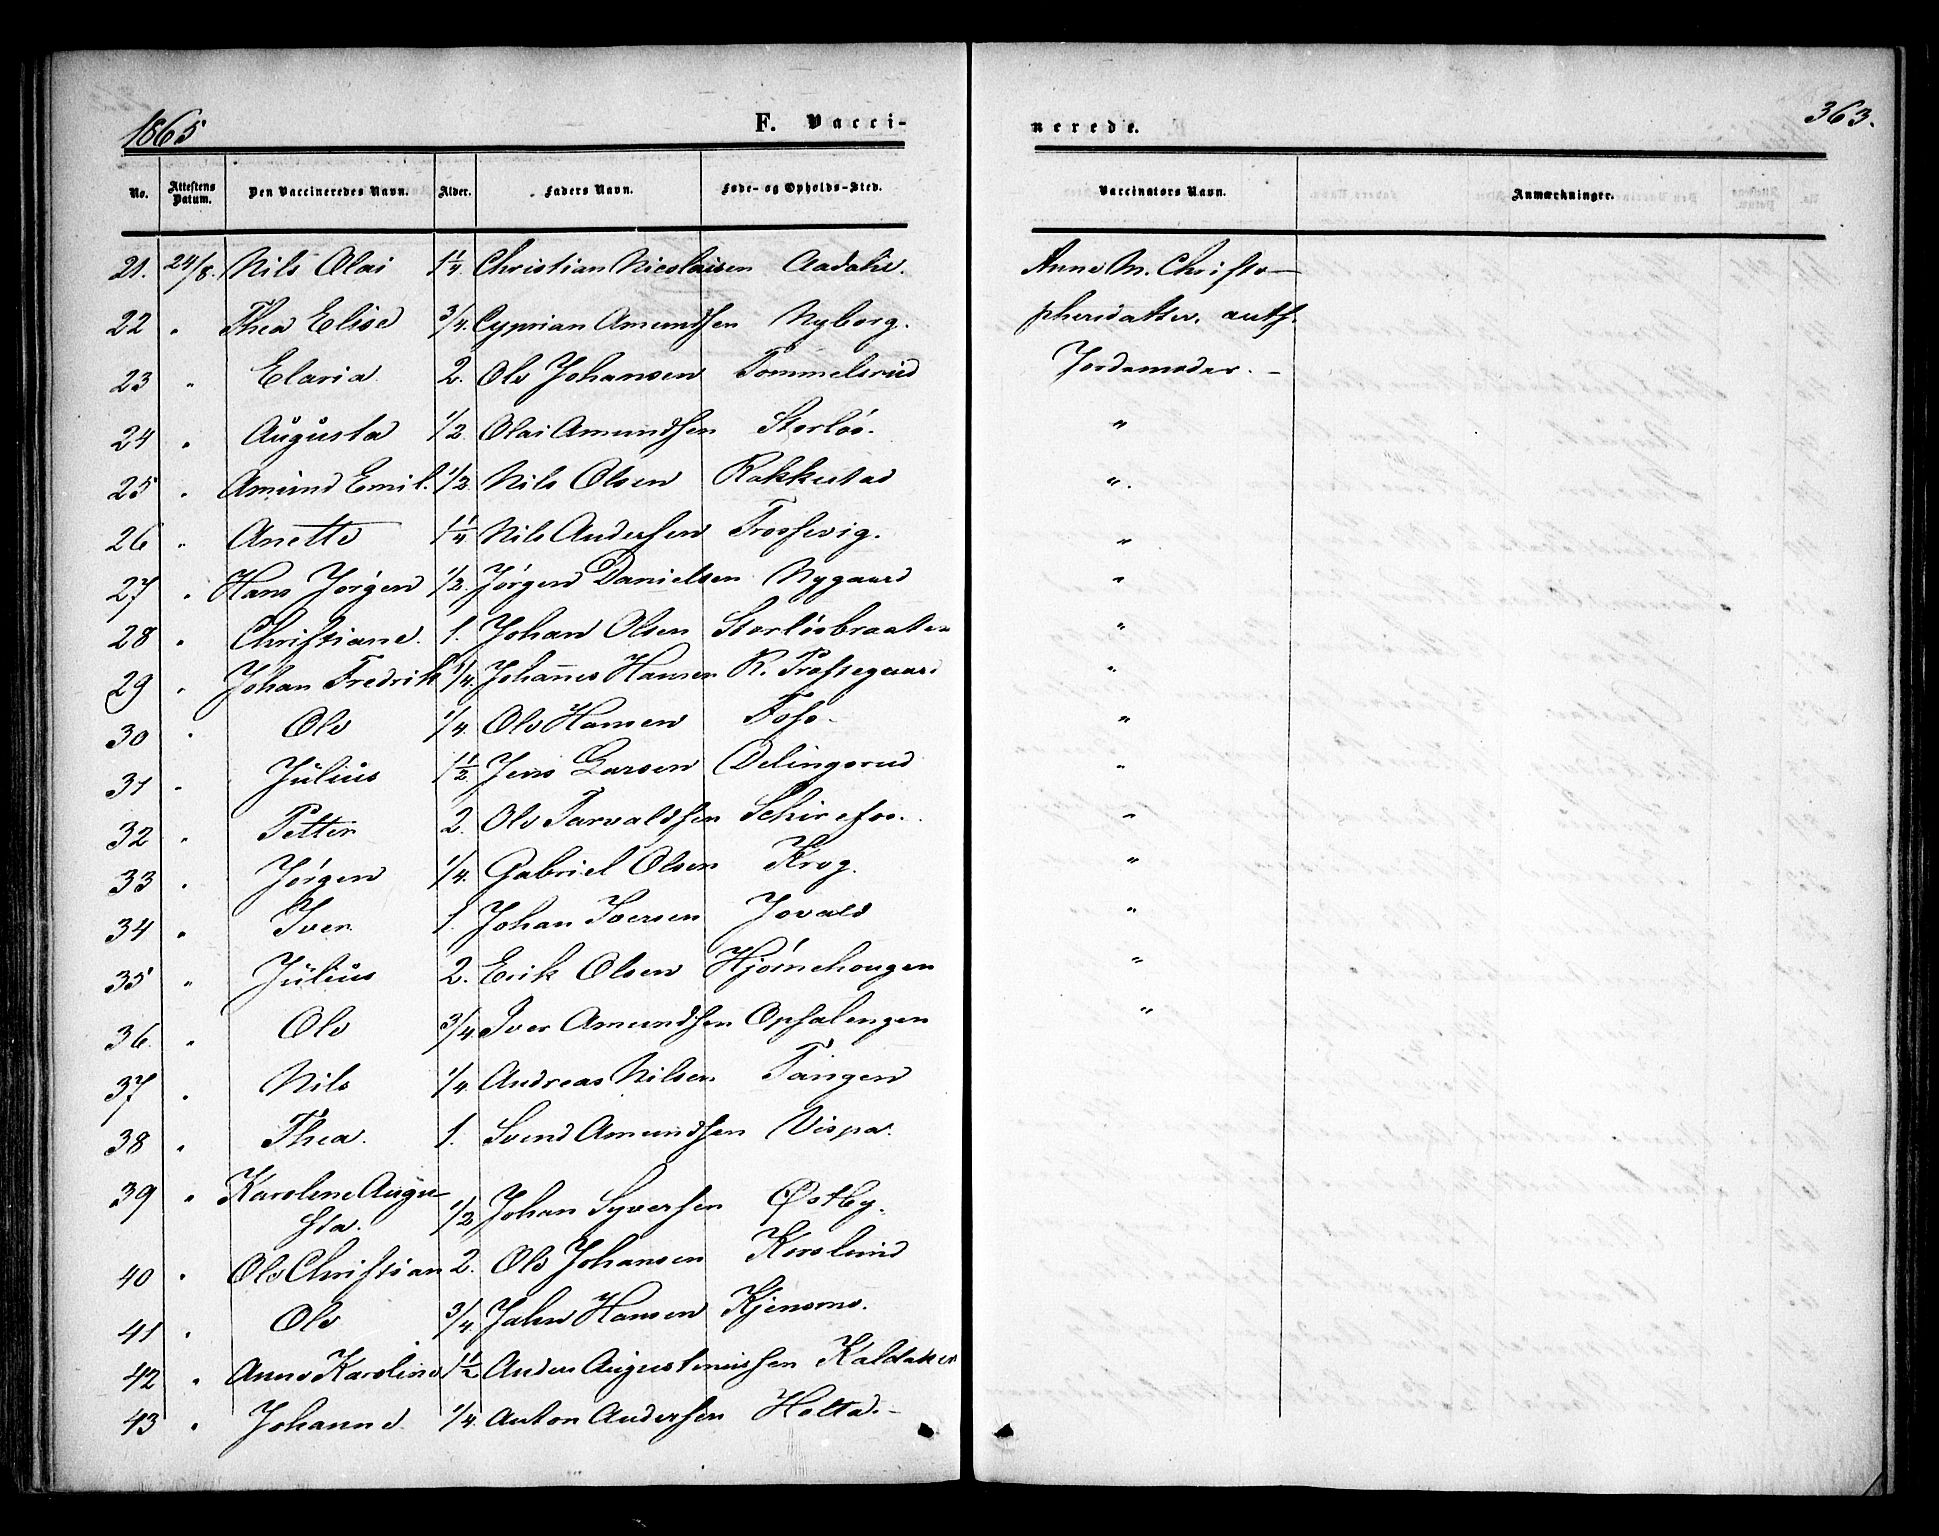 1865 F. Vacci- nerede. 363.
No. Attestens Datum. Den Vaccineredes Navn. Alder. Faders Navn. Føde- og Opholds-Sted. Vaccinators Navn. Anmærkninger.
21. 24/8. Nils Olai 1 1/4. Christian Nicolaisen Aadalie. Anne M. Christo-
22 " Thea Elise 3/4. Cyprian Amundsen Nyborg. phersdatter, auth.
23 " Elaria 2. Ole Johansen Tommelsrud Jordemoder. -
24 " Augusta 1/2. Olai Amundsen Storløs. "
25 " Amund Emil. 1/2. Nils Olsen Rakkestad "
26 " Anette 1 1/4 Nils Andersen Trossevig. "
27 " Hans Jørgen 1/2. Jørgen Danielsen Nygaard "
28 " Christiane. 1. Johan Olsen Storløsbraaten "
29 " Johan Fredrik 1/4. Johannes Hansen R. Prestegaard "
30 " Ole 1/4. Ole Hansen Foss. "
31 " Julius 1 1/2 Jens Larsen Delingsrud "
32 " Petter 2. Ole Tarvaldsen "
33 " Jørgen 1/4. Gabriel Olsen Krog. "
34 " Iver 1. Johan Iversen Jovald "
35 " Julius 2. Erik Olsen Hjørnehougen "
36 " Ole 3/4. Iver Amundsen Opsalengen "
37 " Nils 1/4. Andreas Nilsen Tangen
38 " Thea. 1. Svend Amundsen Vispa.
39 " Karoline Augu-
sta. 1/2 Johan Syversen Østby.
40 " Ole Christian 2. Ole Johansen Korslund
41 " Ole 3/4. John Hansen Kjensmo.
42 " Anne Karoline 1 1/2 Anders Augustinussen Kaldaker
43 " Johanne. 1/4. Anton Andersen Holta. -